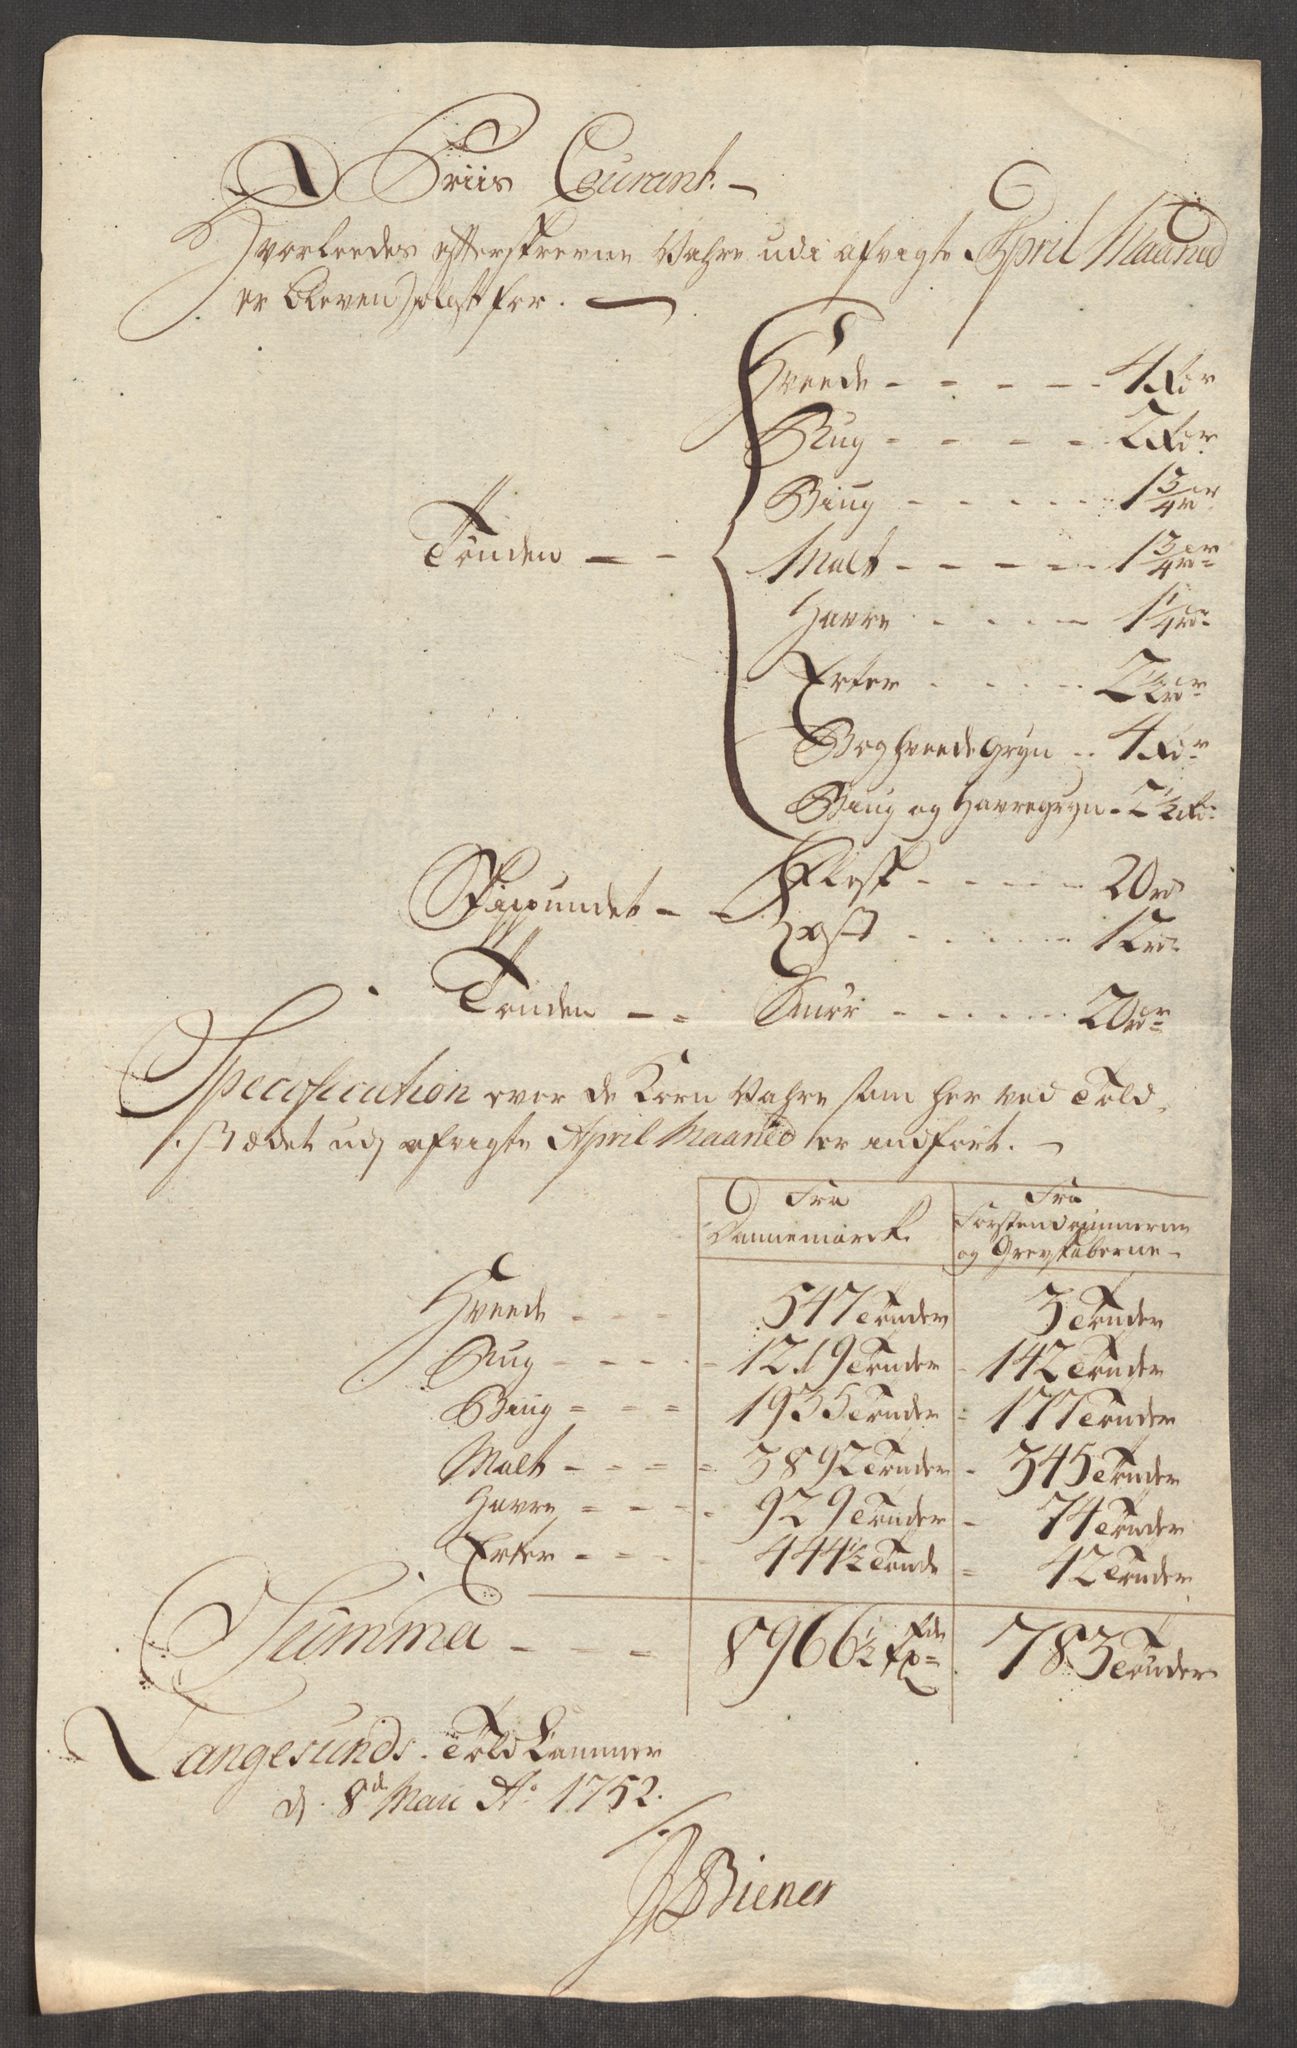 Priis Courant.
Hvorleedes efterskrevne Vahre udi afvigte April Maaned
er bleven solgt for.
Hveede - - - - - 4 Rdr
Rug - - - - 2 Rdr
Biug - - - - - 1 3/4 rdr
Tönden - - Malt - - - - - 1 3/4 rdr
Havre - - - - 1 1/4 rdr
Erter - - - - 2 1/2 rdr
Boghveede gryn - - 4 Rdr
Biug og Havregryn - 2 1/2 Rdr
Skippundet - - Flesk - - - - - 20 rd
Ost - - - - - - 12 rd
Tönden - - Smör - - - - - - 20 rdr
Specification over de Korn Vahre som her ved Told-
stædet udj afvigte April Maaned er indfört.
Fra Fra
Dannemarck. Förstendommerne
og Grevskaberne
Hveede - - - 547 Tönder 3 Tönder
Rug - - - - - 1219 Tönder - 142 Tönder
Biug - - - 1935 Tönder - 177 Tönder
Malt - - - - - 3892 Tönder - 345 Tönder
Havre - - - - 929 Tönder - 74 Tönder
Erter - - - - 444 1/2 Tönde - 42 Tönder
Summa - - - 8966 1/2 783 Tönder
Langesunds Told Kammer
d. 8d Maii Ao 1752.
Biener